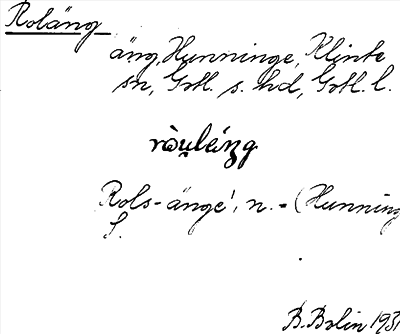 Roläng
äng, Hunninge, Klinte
sn, Gotl. s. hd, Gotl. l.
ròu̯léŋg
Rols-änge', n. - (Hunning
f.
B. Bolin 193